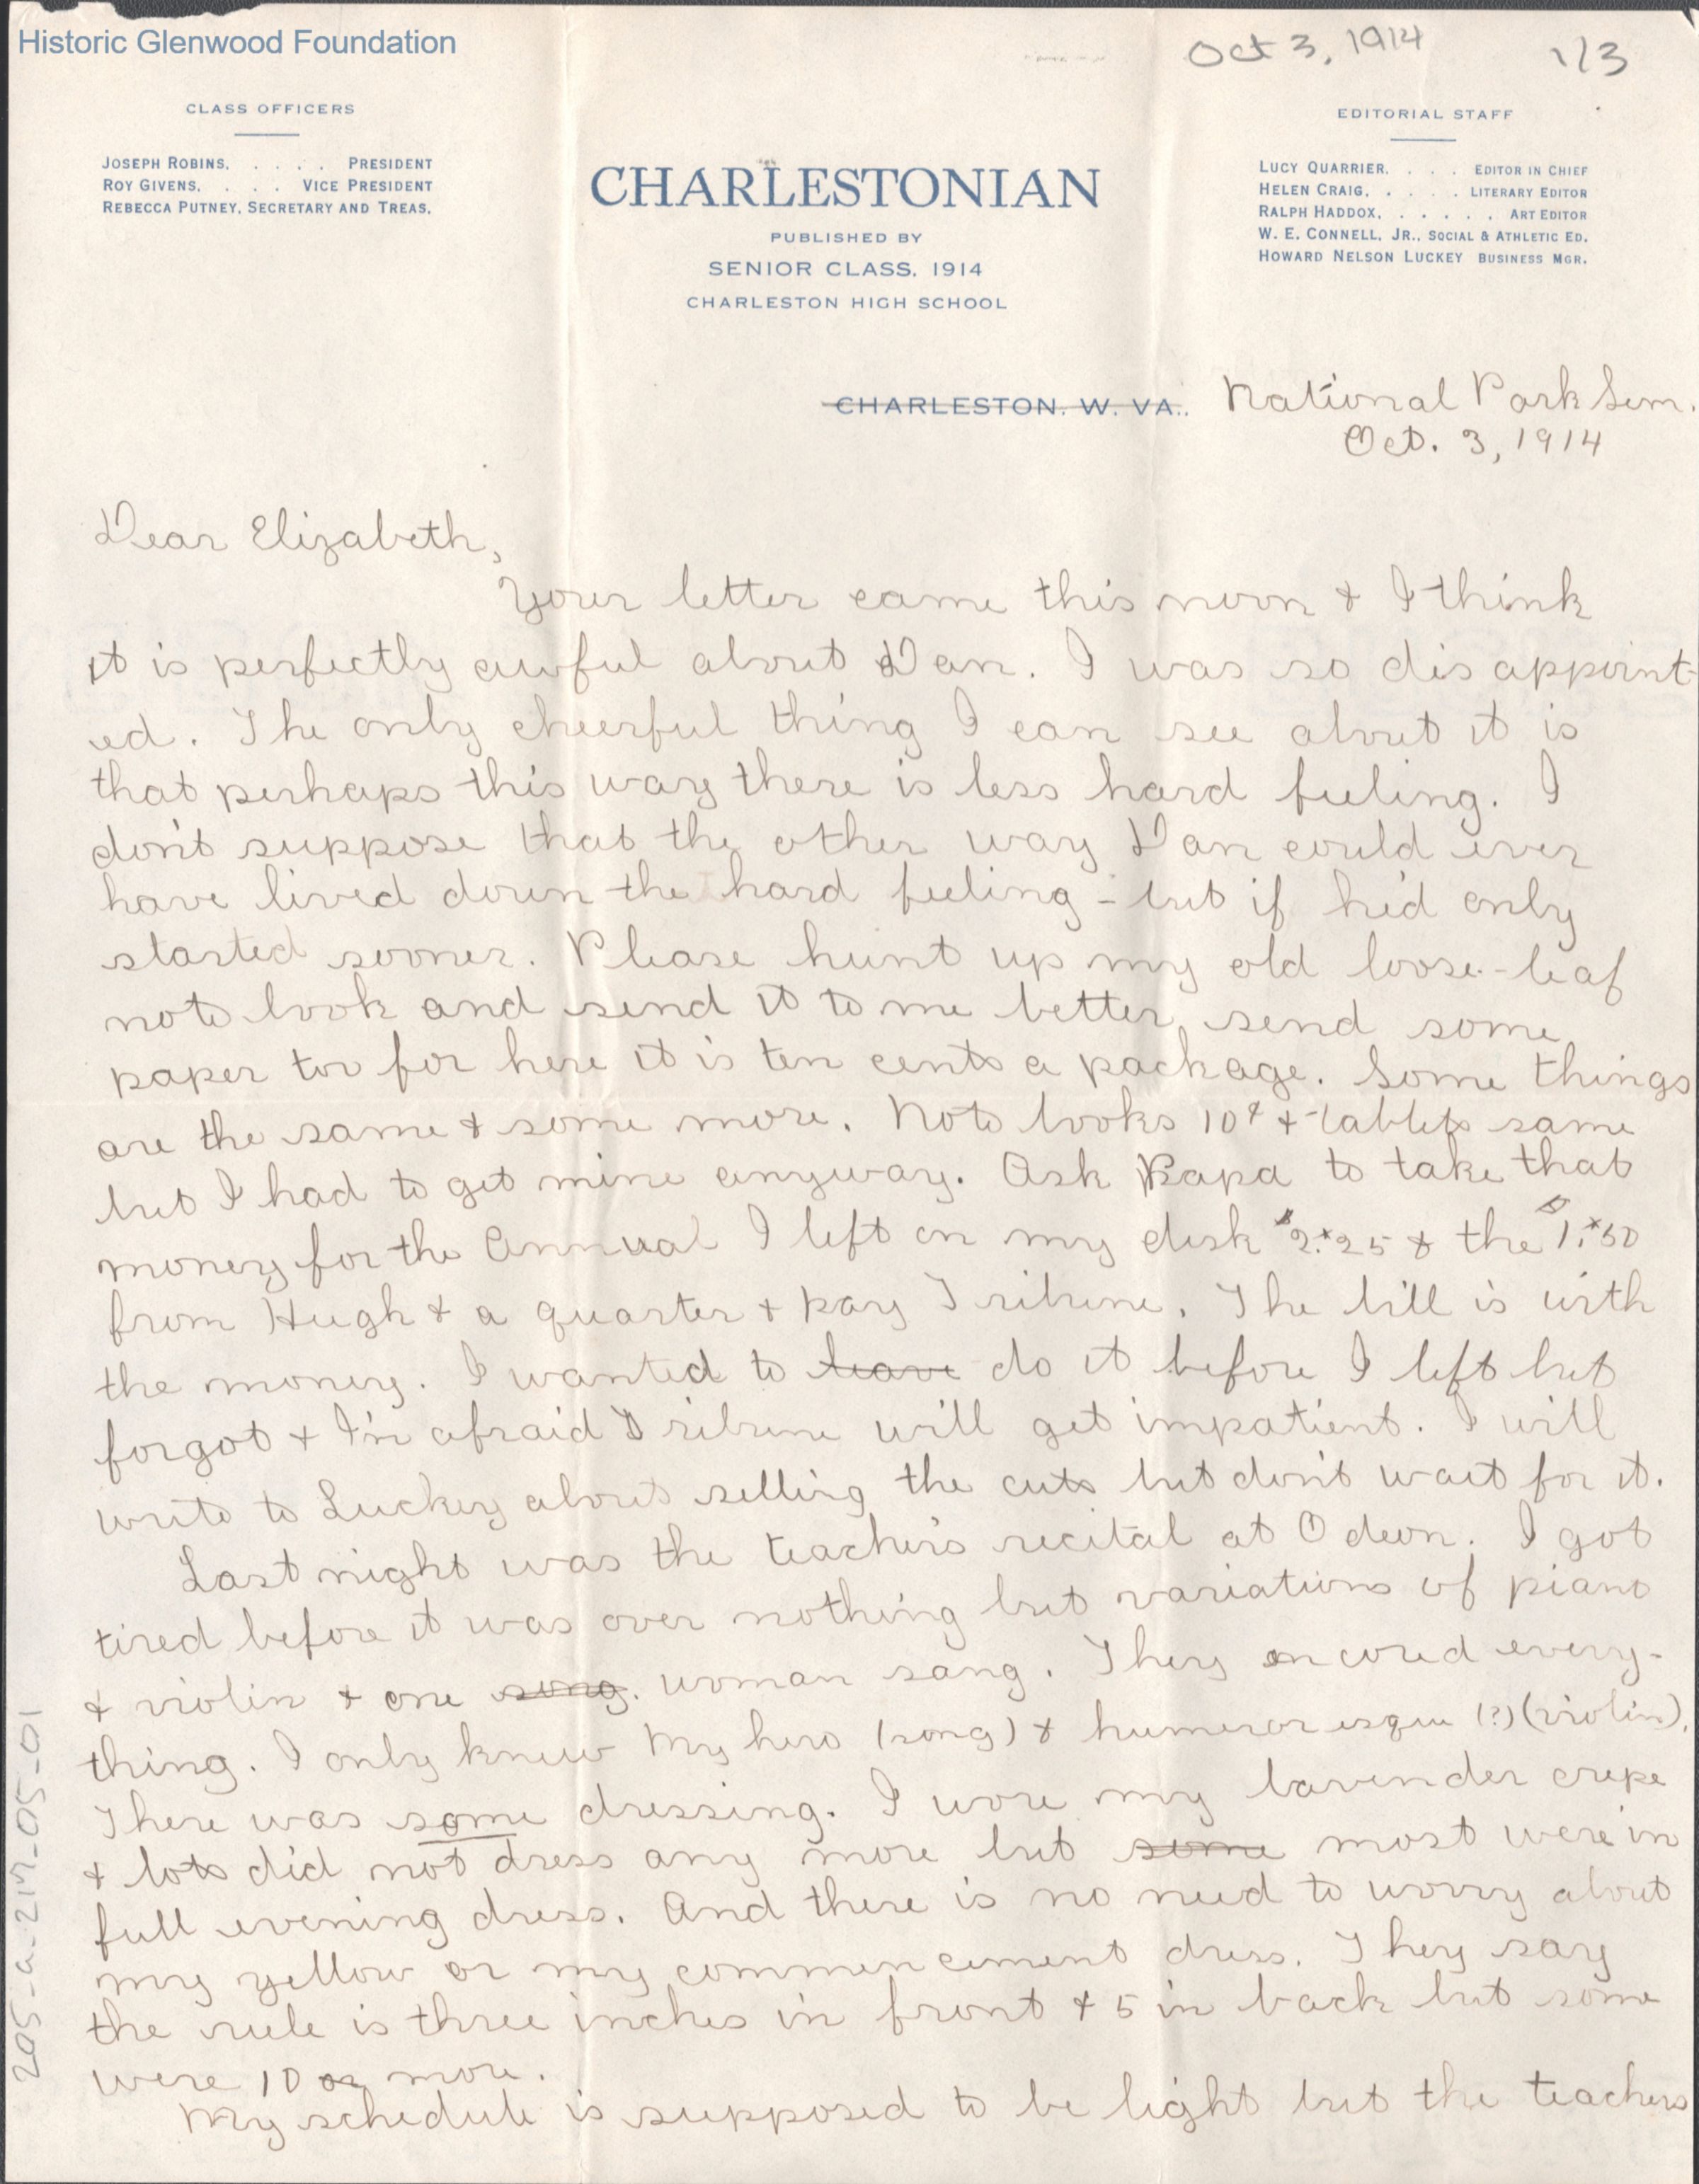 Historic Glenwood Foundation
Oct 3, 1914 1/3
CLASS OFFICERS
JOSEPH ROBINS. . . . . PRESIDENT
ROY GIVENS. . . . VICE PRESIDENT
REBECCA PUTNEY, SECRETARY AND TREAS.
CHARLESTONIAN
PUBLISHED BY
SENIOR CLASS, 1914
CHARLESTON HIGH SCHOOL
EDITORIAL STAFF
LUCY QUARRIER. . . . EDITOR IN CHIEF
HELEN CRAIG. . . . . LITERARY EDITOR
RALPH HADDOX. . . . . . ART EDITOR
W. E. CONNELL, JR., SOCIAL & ATHLETIC ED.
HOWARD NELSON LUCKEY BUSINESS MGR.
CHARLESTON, W. VA., National Park Sem.
Oct. 3, 1914
Dear Elizabeth,
Your letter came this noon & I think
it is perfectly awful about Dan. I was so disappoint-
ed. The only cheerful thing I can see about it is
that perhaps this way there is less hard feeling. I
don't suppose that the other way Dan could ever
have lived down the hard feeling - but if he'd only
started sooner. Please hunt up my old loose-leaf
note book and send it to me better send some
paper too for here it is ten cents a package. Some things
are the same & some more. Note books 10¢ & tablets same
but I had to get mine anyway. Ask Papa to take that
money for the Annual I left on my desk $2.25 & the $1.50
from Hugh & a quarter & pay Tribune. The bill is with
the money. I wanted to leave do it before I left but
forgot & I'm afraid Tribune will get impatient. I will
write to Luckey about selling the cuts but don't wait for it.
Last night was the teacher's recital at Odeon. I got
tired before it was over nothing but variations of piano
& violin & one song. woman sang. They encored every-
thing. I only knew My hero (song) & humeroresque (?) (violin).
There was some dressing. I wore my lavender crepe
& lots did not dress any more but some most were in
full evening dress. And there is no need to worry about
my yellow or my commencement dress. They say
the rule is three inches in front & 5 in back but some
were 10 or more.
My schedule is supposed to be light but the teachers
205-a-217-05-01